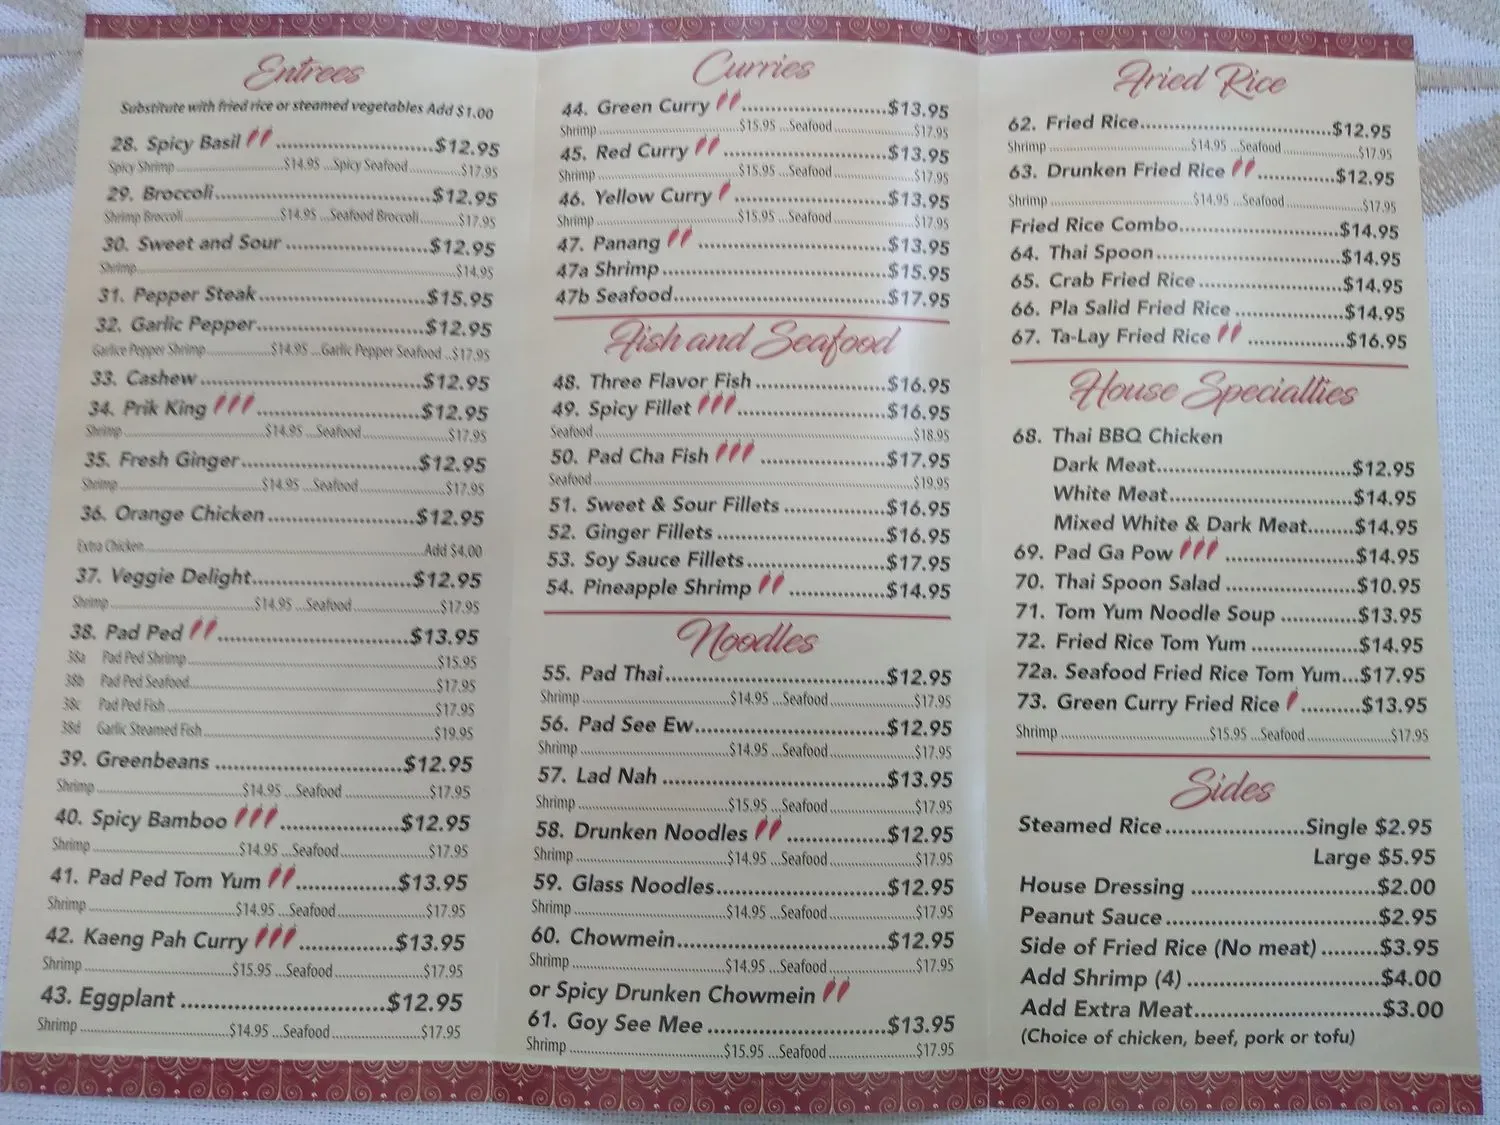 Entrees
Substitute with fried rice or steamed vegetables Add $1.00
28. Spicy Basil ........................$12.95
Spicy Shrimp ........................$14.95 ...Spicy Seafood ..............$17.95
29. Broccoli .................................$12.95
Shrimp Broccoli ........................$14.95 ...Seafood Broccoli ..........$17.95
30. Sweet and Sour .....................$12.95
Shrimp ........................$14.95
31. Pepper Steak.........................$15.95
32. Garlic Pepper.........................$12.95
Garlice Pepper Shrimp .................$14.95 ...Garlic Pepper Seafood ..$17.95
33. Cashew .................................$12.95
34. Prik King ........................$12.95
Shrimp ........................$14.95 ...Seafood ........................$17.95
35. Fresh Ginger.........................$12.95
Shrimp ........................$14.95 ...Seafood ........................$17.95
36. Orange Chicken .....................$12.95
Extra Chicken ........................Add $4.00
37. Veggie Delight........................$12.95
Shrimp ........................$14.95 ...Seafood ........................$17.95
38. Pad Ped ...........................$13.95
38a Pad Ped Shrimp ........................$15.95
38b Pad Ped Seafood ........................$17.95
38c Pad Ped Fish ........................$17.95
38d Garlic Steamed Fish ........................$19.95
39. Greenbeans ...........................$12.95
Shrimp ........................$14.95 ...Seafood ........................$17.95
40. Spicy Bamboo ..................$12.95
Shrimp ........................$14.95 ...Seafood ........................$17.95
41. Pad Ped Tom Yum ...............$13.95
Shrimp ........................$14.95 ...Seafood ........................$17.95
42. Kaeng Pah Curry ..............$13.95
Shrimp ........................$15.95 ...Seafood ........................$17.95
43. Eggplant ..............................$12.95
Shrimp ........................$14.95 ...Seafood ........................$17.95
Curries
44. Green Curry .....................$13.95
Shrimp ........................$15.95 ...Seafood ........................$17.95
45. Red Curry ........................$13.95
Shrimp ........................$15.95 ...Seafood ........................$17.95
46. Yellow Curry .......................$13.95
Shrimp ........................$15.95 ...Seafood ........................$17.95
47. Panang ...........................$13.95
47a Shrimp .................................$15.95
47b Seafood.................................$17.95
Fish and Seafood
48. Three Flavor Fish ...................$16.95
49. Spicy Fillet .....................$16.95
Seafood ........................$18.95
50. Pad Cha Fish ..................$17.95
Seafood ........................$19.95
51. Sweet & Sour Fillets ...............$16.95
52. Ginger Fillets .........................$16.95
53. Soy Sauce Fillets.....................$17.95
54. Pineapple Shrimp ..............$14.95
Noodles
55. Pad Thai.................................$12.95
Shrimp ........................$14.95 ...Seafood ........................$17.95
56. Pad See Ew.............................$12.95
Shrimp ........................$14.95 ...Seafood ........................$17.95
57. Lad Nah .................................$13.95
Shrimp ........................$15.95 ...Seafood ........................$17.95
58. Drunken Noodles ..............$12.95
Shrimp ........................$14.95 ...Seafood ........................$17.95
59. Glass Noodles.........................$12.95
Shrimp ........................$14.95 ...Seafood ........................$17.95
60. Chowmein..............................$12.95
Shrimp ........................$14.95 ...Seafood ........................$17.95
or Spicy Drunken Chowmein
61. Goy See Mee .........................$13.95
Shrimp ........................$15.95 ...Seafood ........................$17.95
Fried Rice
62. Fried Rice..............................$12.95
Shrimp ........................$14.95 ...Seafood ........................$17.95
63. Drunken Fried Rice ............$12.95
Shrimp ........................$14.95 ...Seafood ........................$17.95
Fried Rice Combo........................$14.95
64. Thai Spoon............................$14.95
65. Crab Fried Rice .....................$14.95
66. Pla Salid Fried Rice ................$14.95
67. Ta-Lay Fried Rice ...............$16.95
House Specialties
68. Thai BBQ Chicken
Dark Meat..............................$12.95
White Meat............................$14.95
Mixed White & Dark Meat.......$14.95
69. Pad Ga Pow ...................$14.95
70. Thai Spoon Salad ...................$10.95
71. Tom Yum Noodle Soup ...........$13.95
72. Fried Rice Tom Yum ...............$14.95
72a. Seafood Fried Rice Tom Yum...$17.95
73. Green Curry Fried Rice ..........$13.95
Shrimp ........................$15.95 ...Seafood ........................$17.95
Sides
Steamed Rice .....................Single $2.95
Large $5.95
House Dressing ............................$2.00
Peanut Sauce ................................$2.95
Side of Fried Rice (No meat) .........$3.95
Add Shrimp (4) .............................$4.00
Add Extra Meat............................$3.00
(Choice of chicken, beef, pork or tofu)